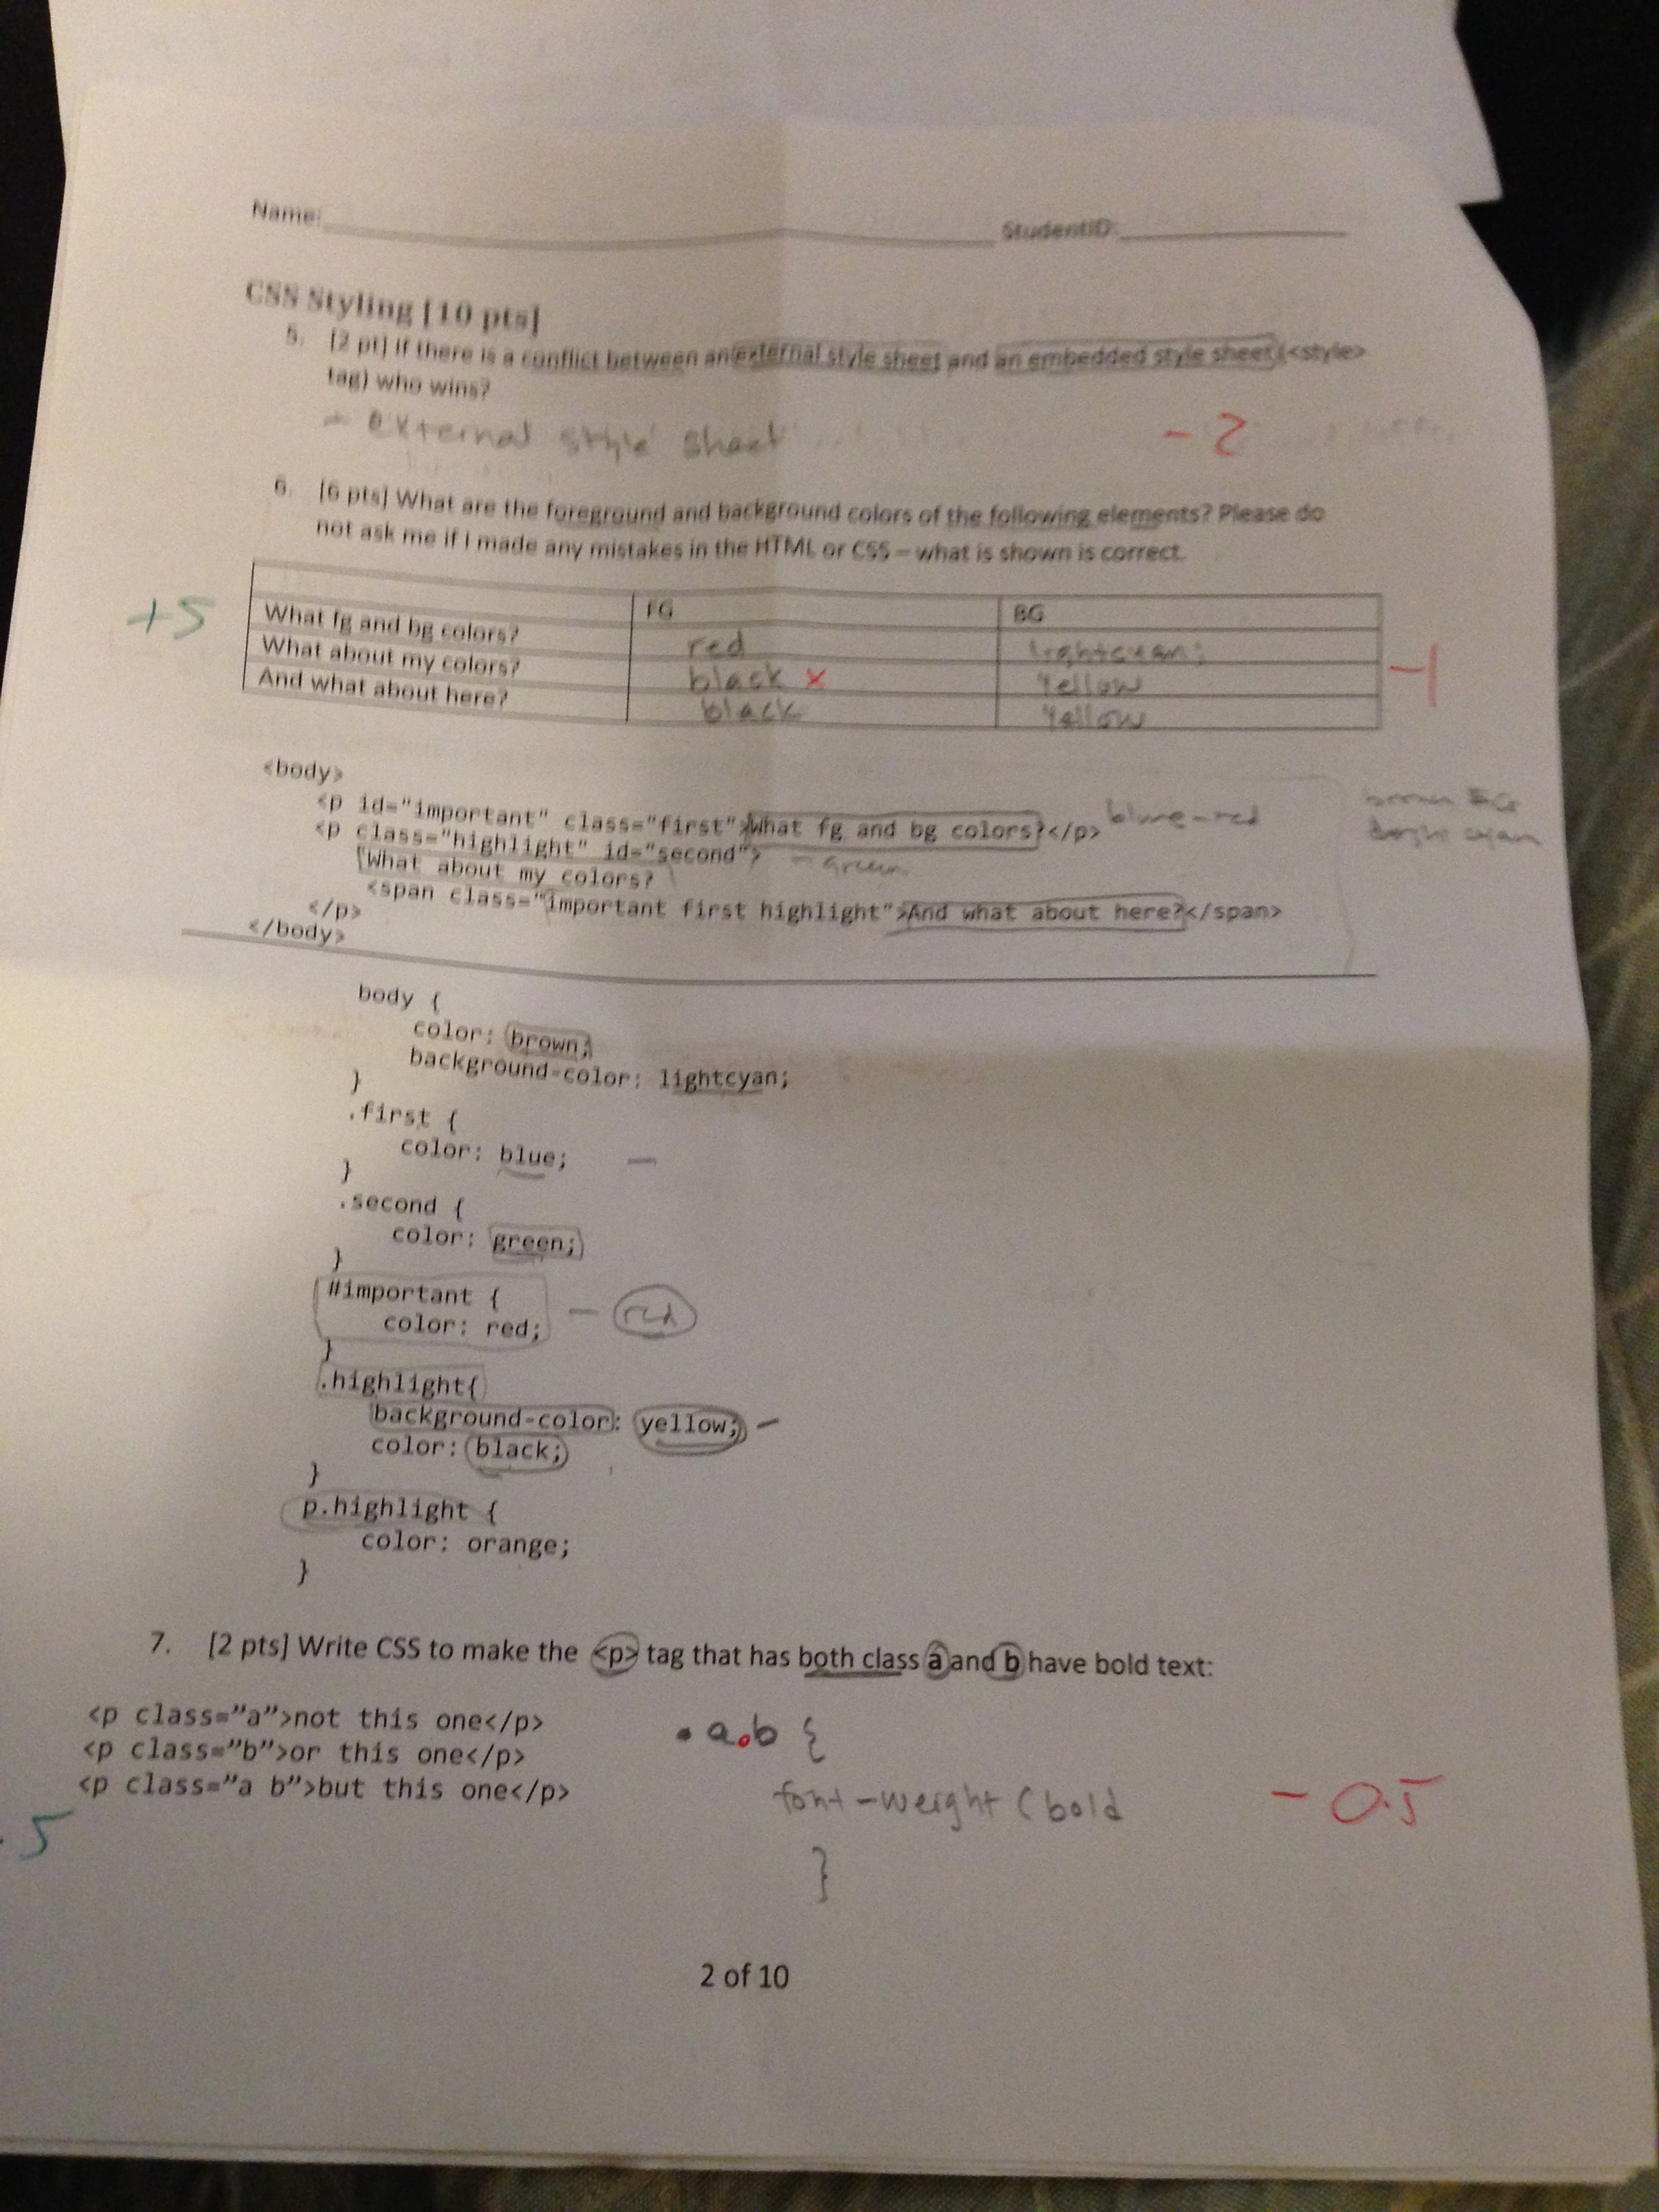 Name: StudentID:
CSS Styling [10 pts]
5. [2 pt] If there is a conflict between an external style sheet and an embedded style sheet (<style>
tag) who wins?
- external style sheet
- 2
6. [6 pts] What are the foreground and background colors of the following elements? Please do
not ask me if I made any mistakes in the HTML or CSS – what is shown is correct.
+5
FG BG
What fg and bg colors? red lightcyan;
What about my colors? black x yellow -1
And what about here? black yellow
<body>
<p id="important" class="first">What fg and bg colors?</p> blue-red
brown
cyan
<p class="highlight" id="second"> - green
What about my colors?
<span class="important first highlight">And what about here?</span>
</p>
</body>
body {
color: brown;
background-color: lightcyan;
}
.first {
color: blue; —
}
.second {
color: green;
}
#important { — red
color: red;
}
.highlight{
background-color: yellow; —
color: black;
}
p.highlight {
color: orange;
}
7. [2 pts] Write CSS to make the <p> tag that has both class a and b have bold text:
<p class="a">not this one</p>
<p class="b">or this one</p>
<p class="a b">but this one</p>
.a.b {
font-weight (bold
}
- 0.5
.5
2 of 10